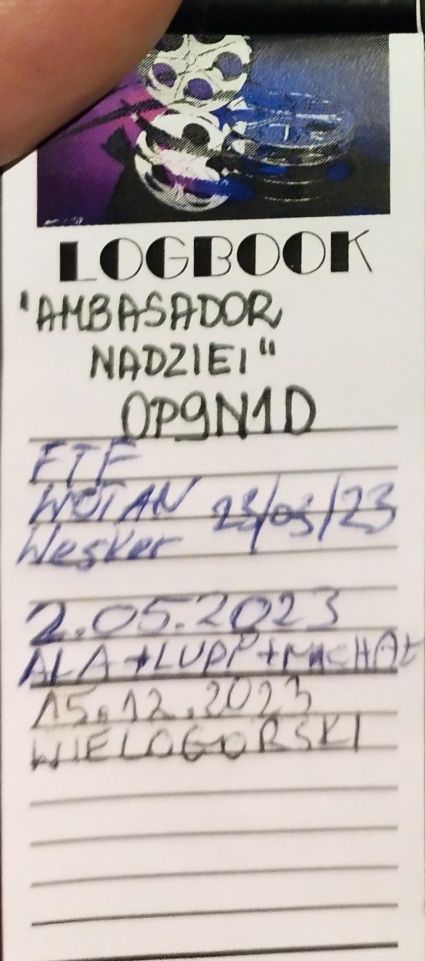 LOGBOOK
"AMBASADOR
NADZIEI"
OP9N1D
FTF
WOTAN 23/03/23
Wesker
2.05.2023
ALA+LUPP+MICHAŁ
15.12.2023
WIELOGORSKI